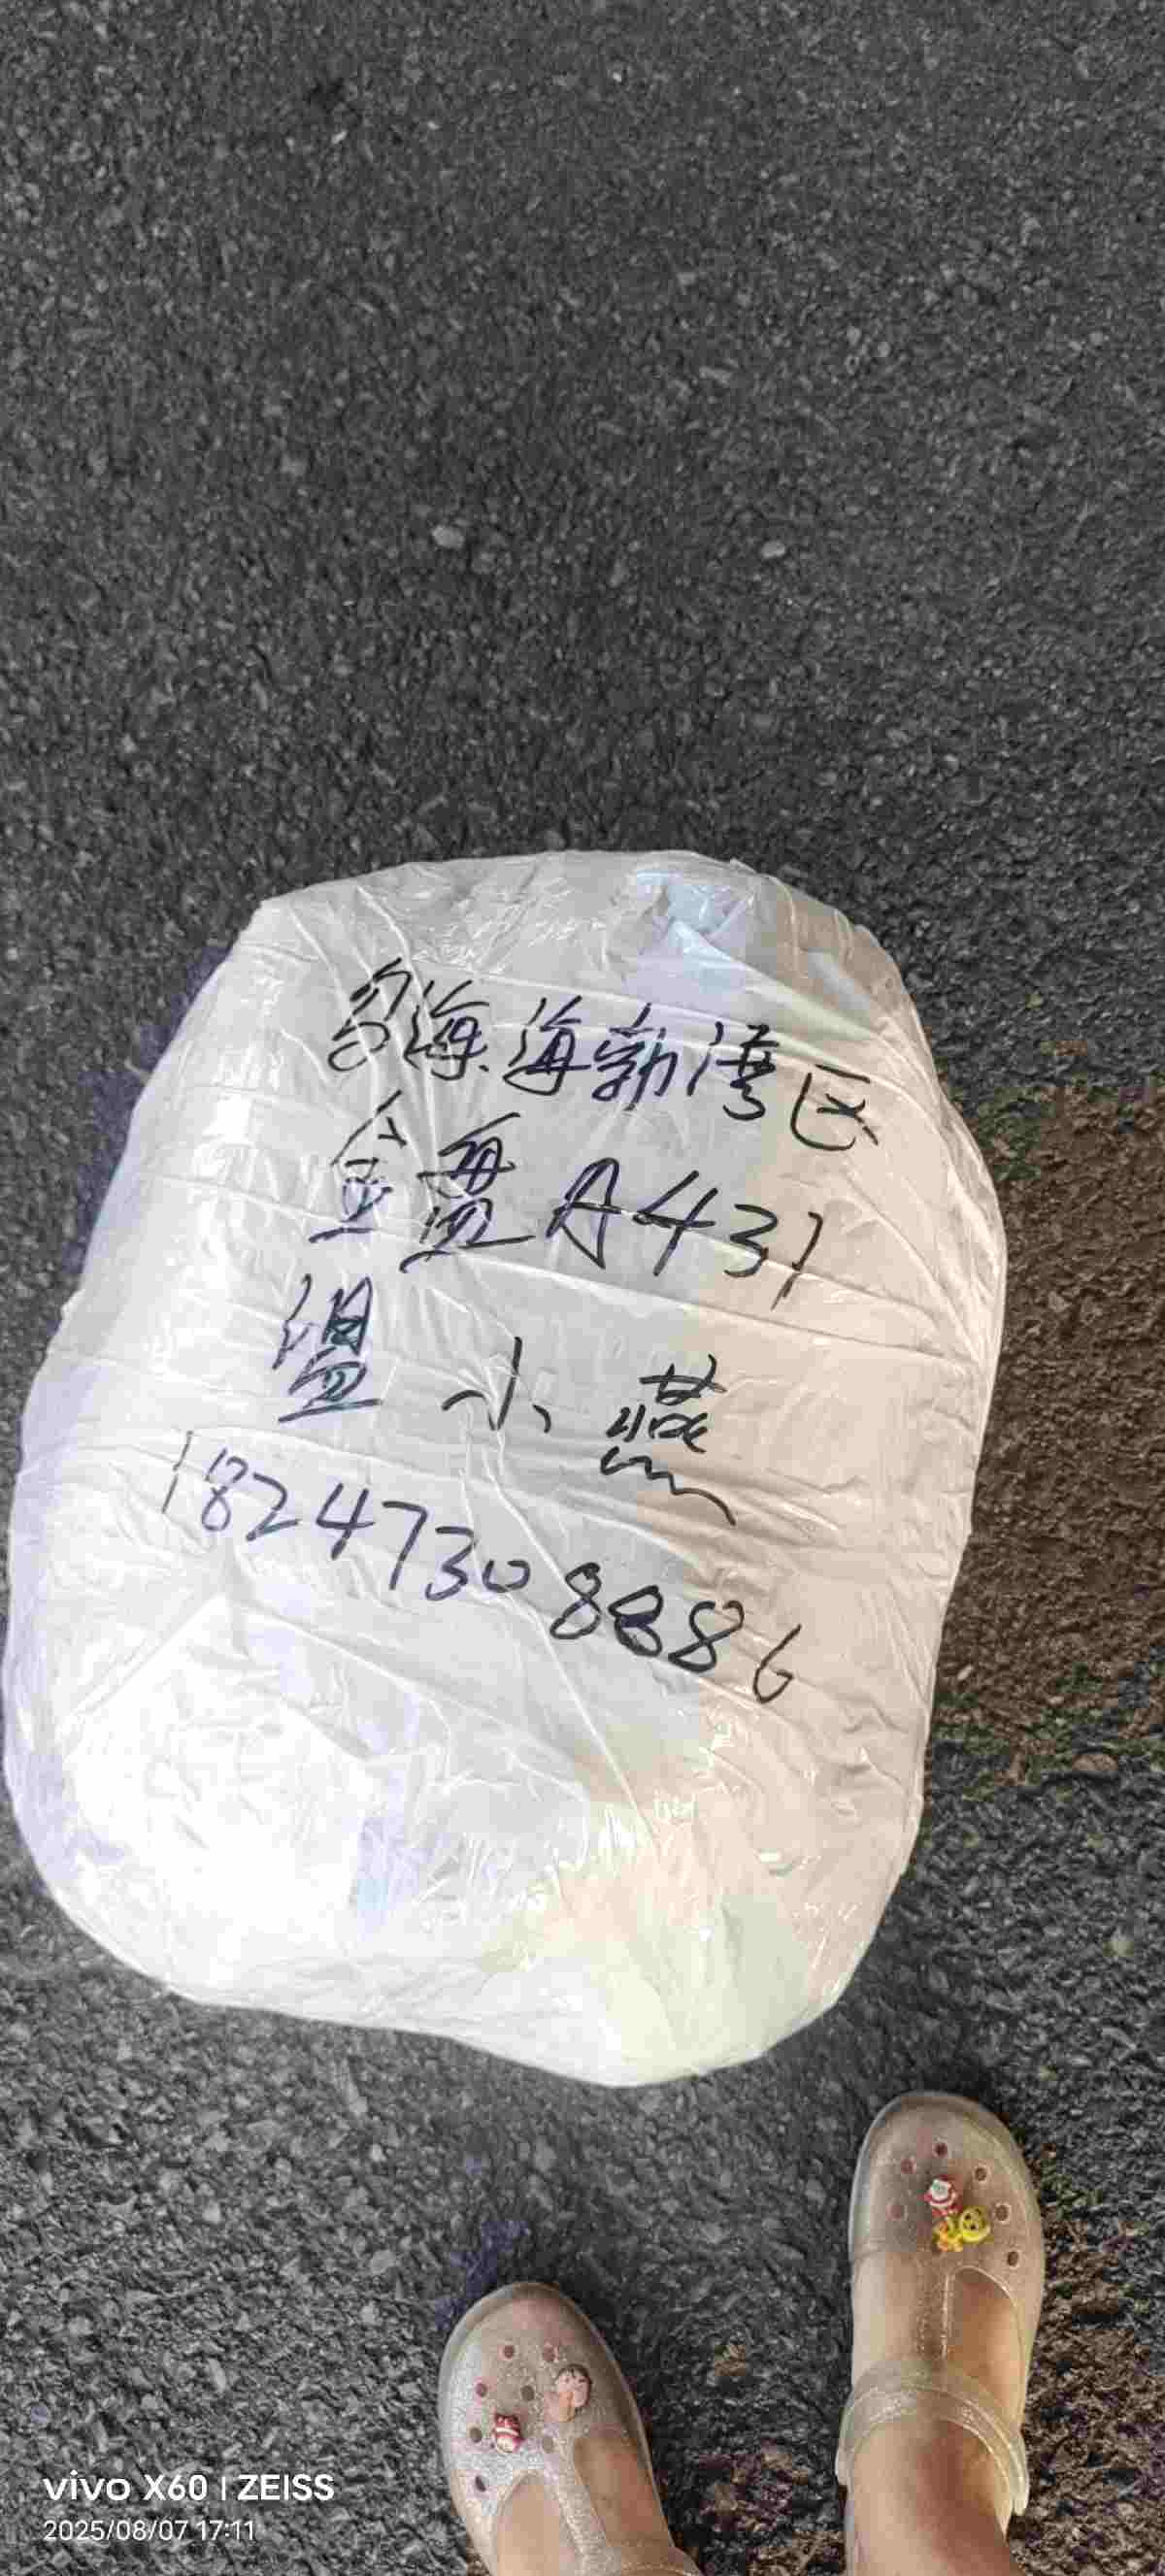 乌海海勃湾区
金盏A431
温小燕
18247308886
vivo X60 | ZEISS
2025/08/07 17:11